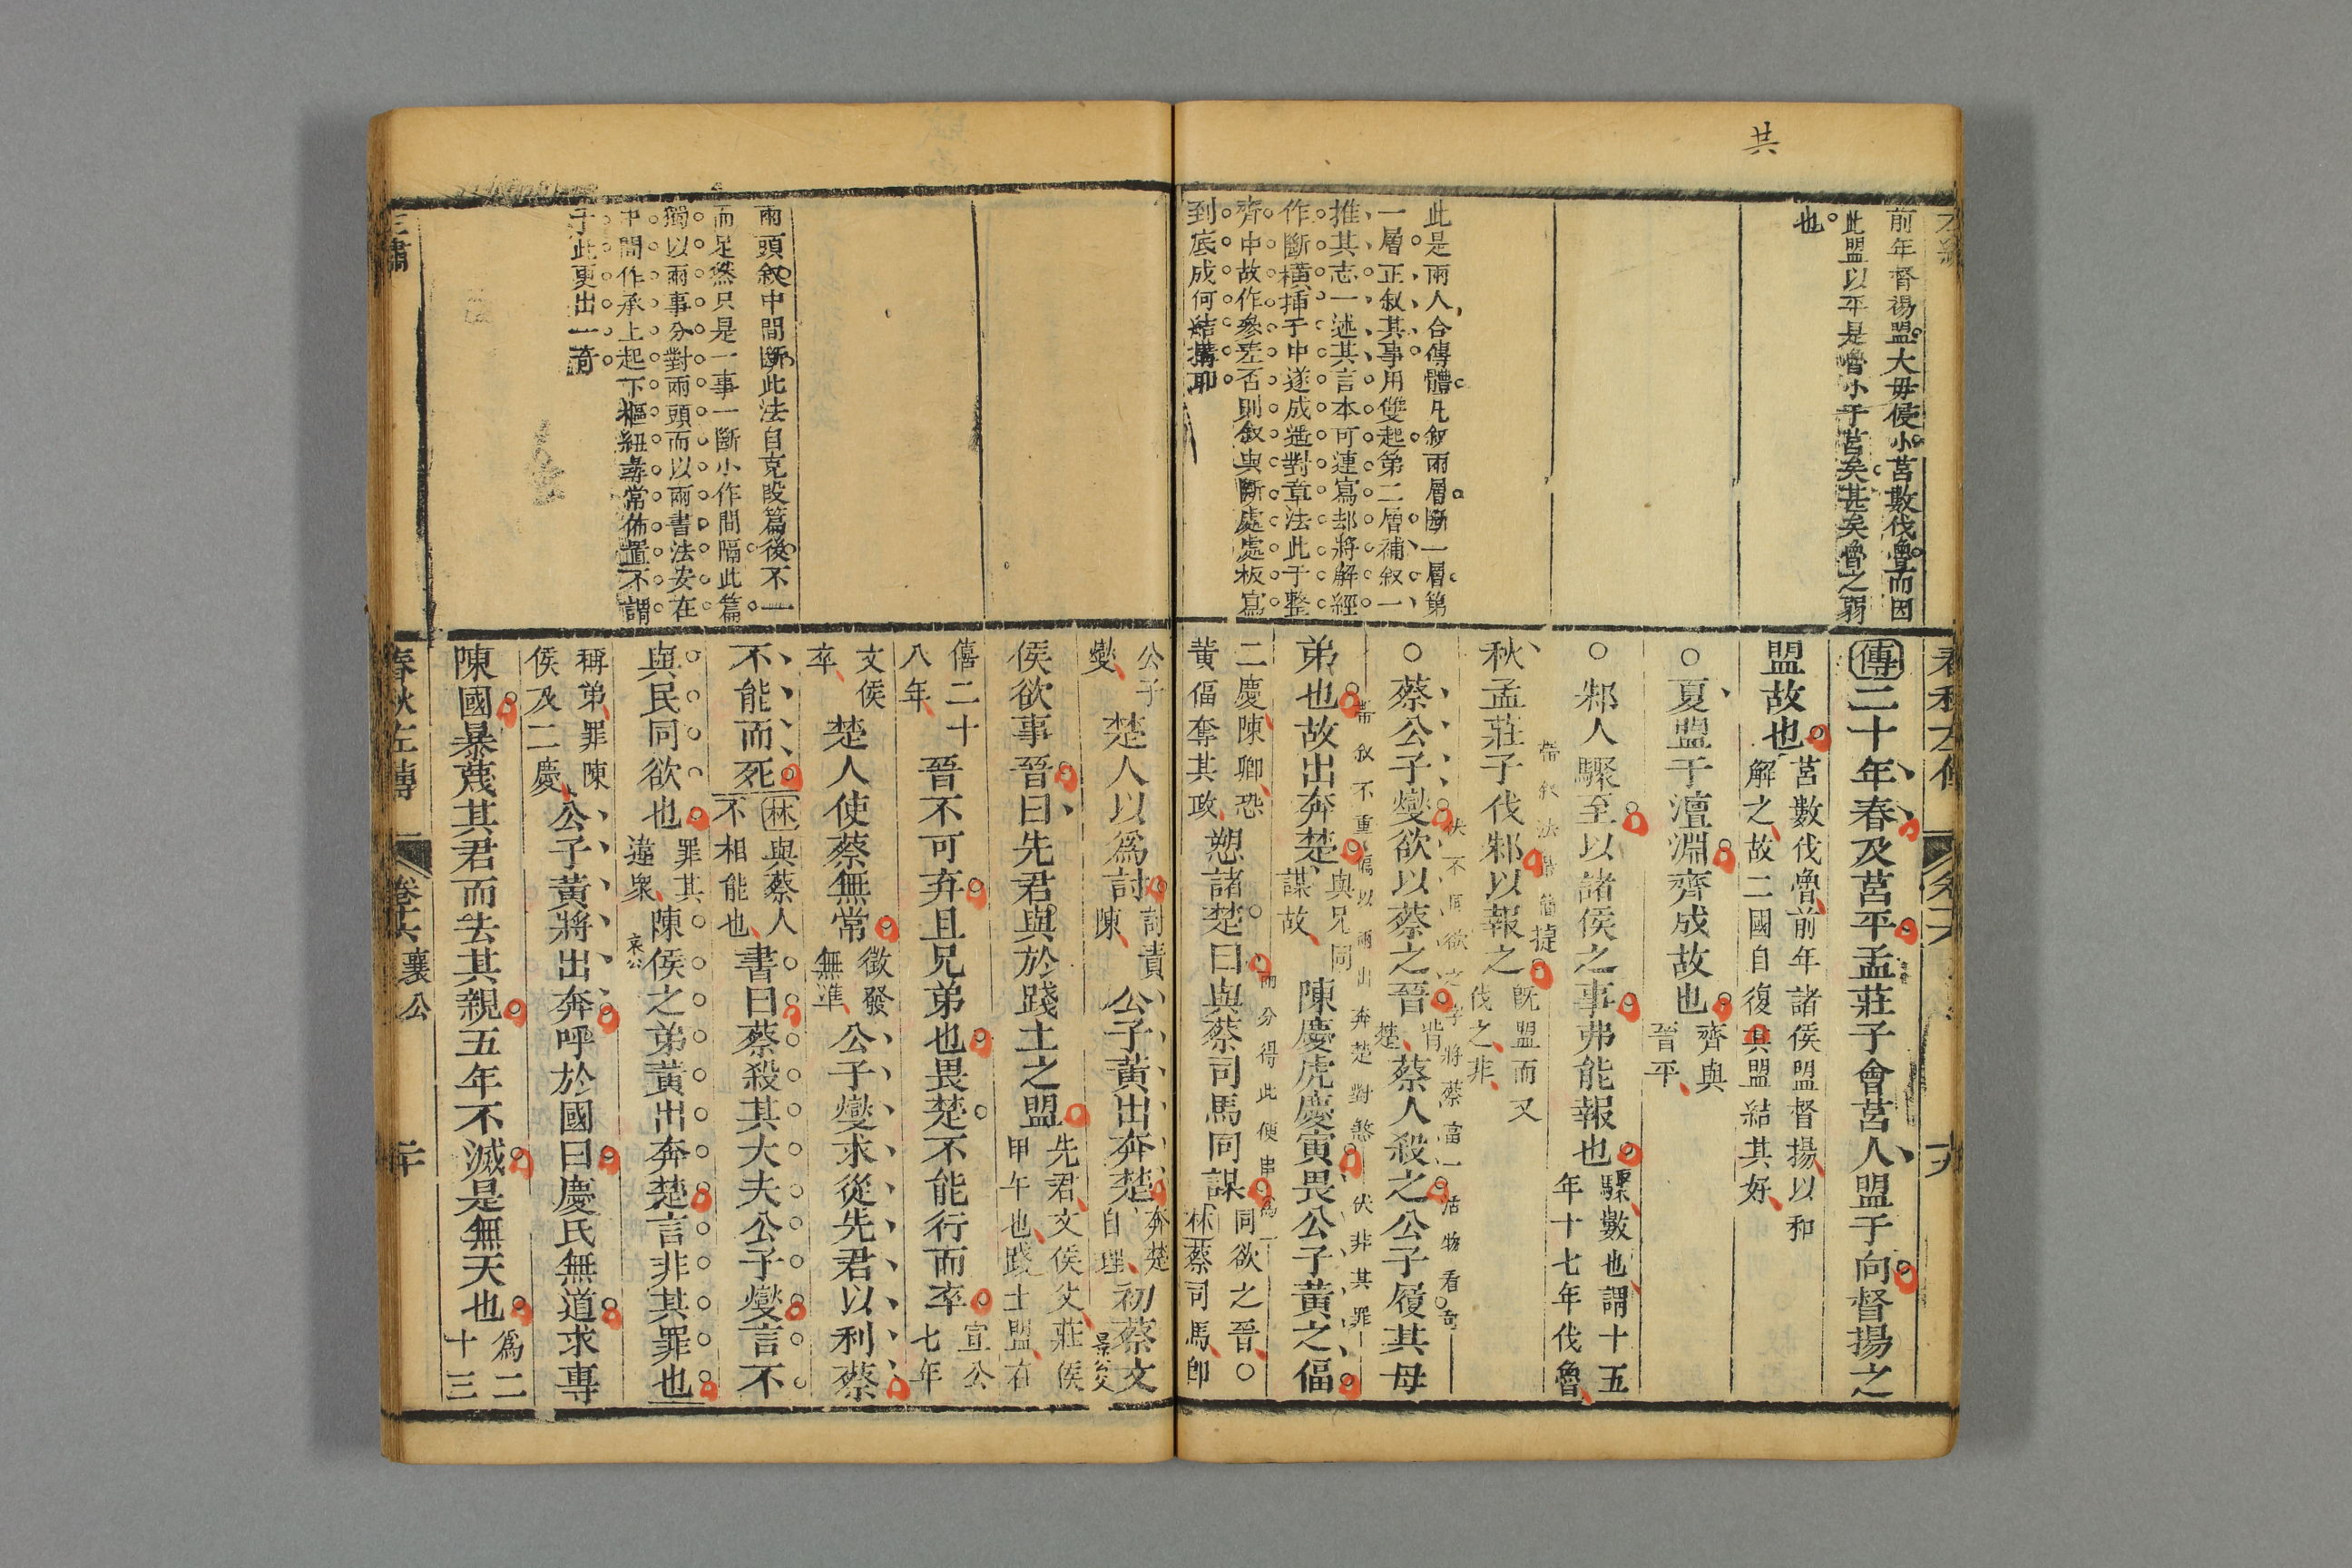 共
前年督揚盟大毋侵小莒數伐魯而因
此盟以平是魯小于莒矣甚矣魯之弱
也
此是兩人合傳體凡叙兩層斷一層第
一層正叙其事用雙起第二層補叙一
推其志一述其言本可連寫却將解經
作斷橫揷于中遂成遥對章法此于整
齊中故作參差否則叙與斷處處板寫
到底成何結搆耶
傳二十年春及莒平孟莊子會莒人盟于向督揚之
盟故也
莒數伐魯前年諸侯盟督揚以和
解之故二國自復其盟結其好
○夏盟于澶淵齊成故也
齊與
晉平
○邾人驟至以諸侯之事弗能報也
驟數也謂十五
年十七年伐魯
秋孟莊子伐邾以報之
既盟而又
伐之非
○蔡公子燮欲以蔡之晉
背
楚
蔡人殺之公子履其母
弟也故出奔楚
與兄同
謀故
陳慶虎慶寅畏公子黃之偪
二慶陳卿恐
黃偪奪其政
愬諸楚曰與蔡司馬同謀
同欲之晉○
林蔡司馬卽
公子
燮
楚人以爲討
討責
陳
公子黃出奔楚
奔楚
自理
初蔡文
侯欲事晉曰先君與於踐土之盟
先君文侯父莊侯
甲午也踐土盟在
僖二十
八年
晉不可弃且兄弟也畏楚不能行而卒
宣公
七年
文侯
卒
楚人使蔡無常
徵發
無準
公子燮求從先君以利蔡
不能而死
林與蔡人
不相能也
書曰蔡殺其大夫公子燮言不
與民同欲也
罪其
違衆
陳侯之弟黃出奔楚言非其罪也
稱弟罪陳
侯及二慶
公子黃將出奔呼於國曰慶氏無道求專
陳國暴蔑其君而去其親五年不滅是無天也
爲二
十三
兩頭叙中間斷此法自克段篇後不一
而足然只是一事一斷小作間隔此篇
獨以兩事分對兩頭而以兩書法安在
中間作承上起下樞紐尋常佈置不謂
于此更出一奇
春秋左傳
卷六
襄公